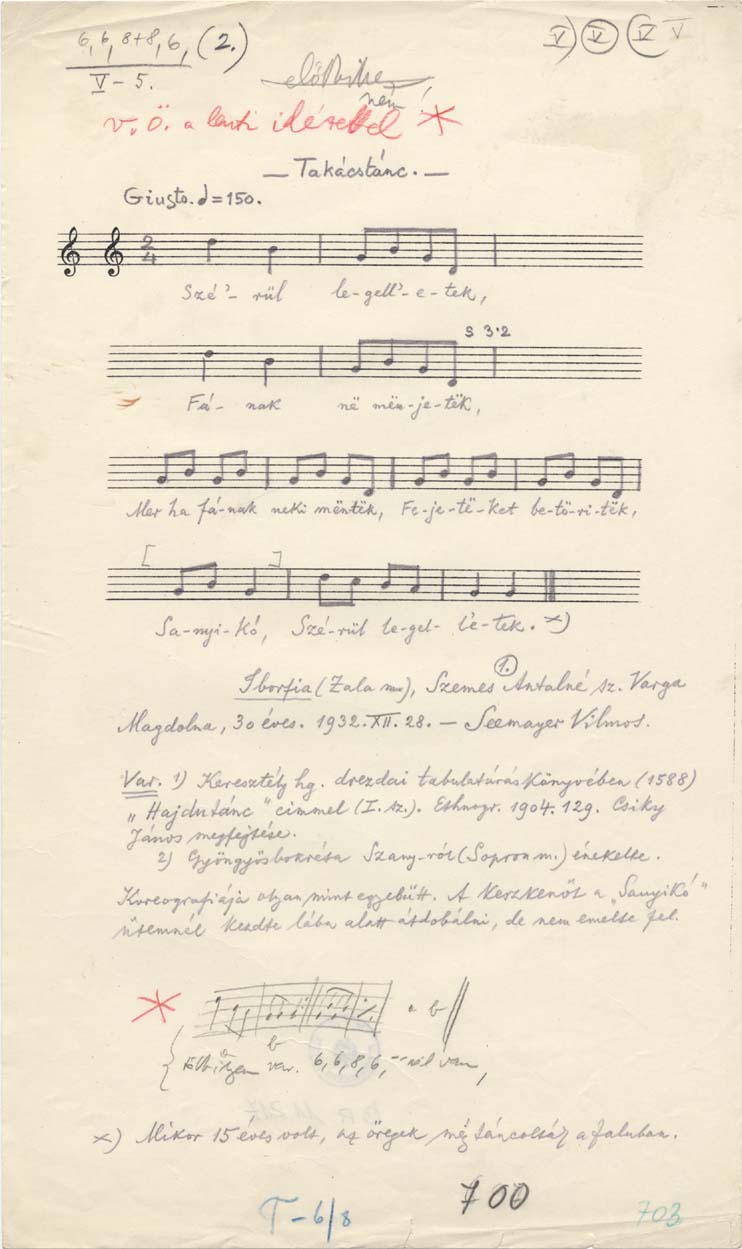 6, 6, 8+8, 6, (2.)
V) V (IV V
V – 5.
nem!
v. ö. a lenti idézettel *
— Takácstánc. —
Giusto. = 150.
2
4
Szé'- rül le-gell'-e-tek,
S 3·2
Fá- nak në mën-je-tëk,
Mer ha fá-nak neki mëntëk, Fe-je-të-ket be-tö-ri-tëk,
[ ]
Sa-nyi-kó, Szé-rül le-gel- l'e-tek. x)
Iborfia (Zala m.), Szemes Antalné sz. Varga
1.
Magdolna, 30 éves. 1932. XII. 28. — Seemayer Vilmos.
Var. 1) Keresztély hg. drezdai tabulatúráskönyvében (1588)
„Hajdutánc" cimmel (I. sz.). Ethnogr. 1904. 129. Csiky
János megfejtése.
2) Gyöngyösbokréta Szany-ról (Sopron m.) énekelte.
Koreografiája olyan mint egyebütt. A keszkenőt a „Sanyikó"
ütemnél kezdte lába alatt átdobálni, de nem emelte fel.
* a b
b
több ilyen var. 6, 6, 8, 6, van,
x) Mikor 15 éves volt, az öregek még táncolták a faluban.
T – 6/8
700
703